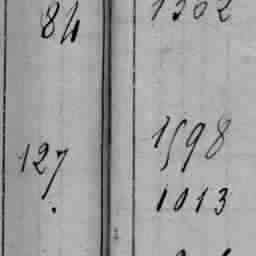 84 1302
127 1598
1013